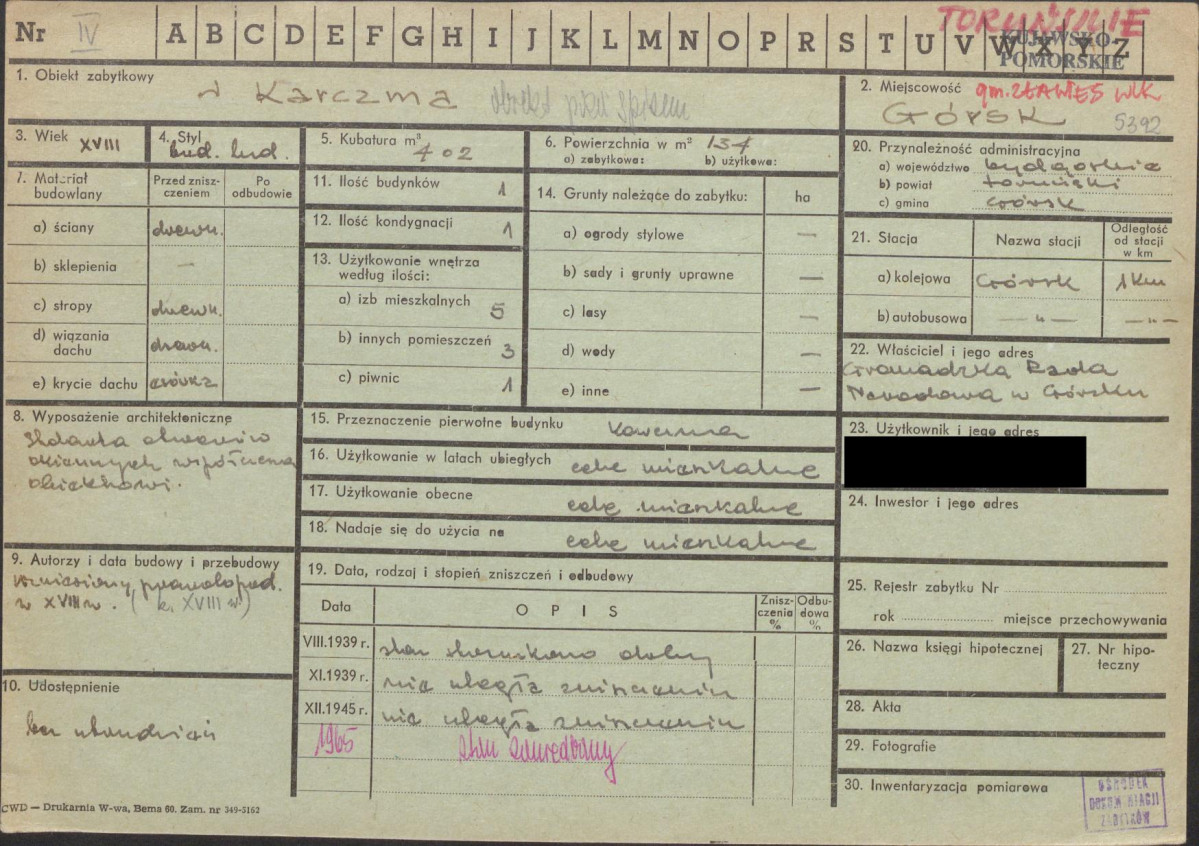 TORUŃSKIE
Nr IV A B C D E F G H I J K L M N O P R S T U V W X Y Z
KUJAWSKO-
POMORSKIE
1. Obiekt zabytkowy
Karczma
2. Miejscowość gm. ZŁAWIEŚ WLK
GÓRSK 5392
3. Wiek XVIII
4. Styl
bud. lud.
5. Kubatura m³
402
6. Powierzchnia w m² 134
a) zabytkowa: b) użytkowa:
7. Materiał budowlany
Przed znisz-czeniem
Po odbudowie
a) ściany drewn.
b) sklepienia —
c) stropy drewn.
d) wiązania dachu drewn.
e) krycie dachu dachówka
8. Wyposażenie architektoniczne
Stolarka otworów
okiennych współczesna
obiektowi.
9. Autorzy i data budowy i przebudowy
wzniesiony prawdopod.
w XVIII w. (k. XVIII w.)
10. Udostępnienie
bez utrudnień
11. Ilość budynków 1
12. Ilość kondygnacji 1
13. Użytkowanie wnętrza według ilości:
a) izb mieszkalnych 5
b) innych pomieszczeń 3
c) piwnic 1
14. Grunty należące do zabytku: ha
a) ogrody stylowe —
b) sady i grunty uprawne —
c) lasy —
d) wody —
e) inne —
15. Przeznaczenie pierwotne budynku karczma
16. Użytkowanie w latach ubiegłych cele mieszkalne
17. Użytkowanie obecne cele mieszkalne
18. Nadaje się do użycia na cele mieszkalne
19. Data, rodzaj i stopień zniszczeń i odbudowy
Data OPIS Znisz-czenia % Odbu-dowa %
VIII.1939 r. stan stosunkowo dobry
XI.1939 r. nie uległa zniszczeniu
XII.1945 r. nie uległa zniszczeniu
1965 stan zaniedbany
20. Przynależność administracyjna
a) województwo bydgoskie
b) powiat toruński
c) gmina Górsk
21. Stacja Nazwa stacji Odległość od stacji w km
a) kolejowa Górsk 1 km
b) autobusowa —"— —"—
22. Właściciel i jego adres
Gromadzka Rada
Narodowa w Górsku
23. Użytkownik i jego adres
24. Inwestor i jego adres
25. Rejestr zabytku Nr
rok miejsce przechowywania
26. Nazwa księgi hipotecznej
27. Nr hipo-teczny
28. Akta
29. Fotografie
30. Inwentaryzacja pomiarowa
OŚRODEK
DOKUMENTACJI
ZABYTKÓW
CWD — Drukarnia W-wa, Bema 60. Zam. nr 349-5162